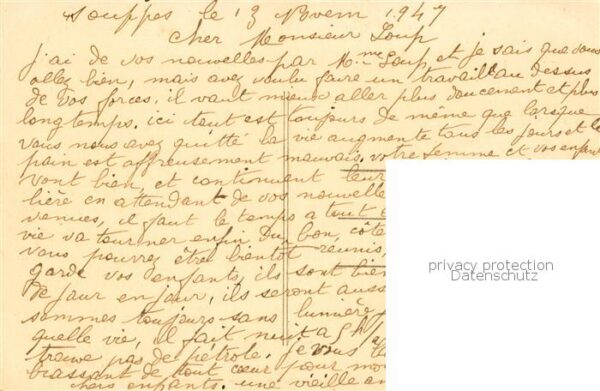 Souppes le 13 Novem 1947
Cher Monsieur Loup
j'ai de vos nouvelles par Mme Loup, et je sais que vous
allez bien, mais avez voulu faire un travail au dessus
de vos forces, il vaut mieux aller plus doucement et plus
longtemps. ici tout est toujours de même que lorsque
vous nous avez quitté la vie augmente tous les jours et le
pain est affreusement mauvais. votre femme et vos enfants
vont bien, et continuent leur
lière en attendant de vos nouvelle
venues, il faut le temps a tout e
vie va tourner enfin. Du bon côte
vous pourrez être bientôt reunis,
garde vos enfants, ils sont bien
de jour en jour, ils seront aus
sommes toujours sans lumière
quelle vie, il fait nuit a 5h
trouve pas de petrole. je vous
brassant de tout cœur pour mo
chers enfants. une vieille am
privacy protection
Datenschutz